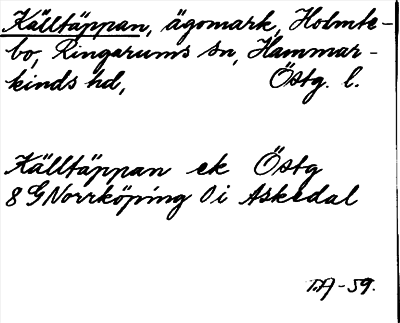 Källtäppan, ägomark, Holmte-
bo, Ringarums sn, Hammar-
kinds hd, Östg. l.
Källtäppan ek Östg
8 G Norrköping 0 i Askedal
T.A-59.